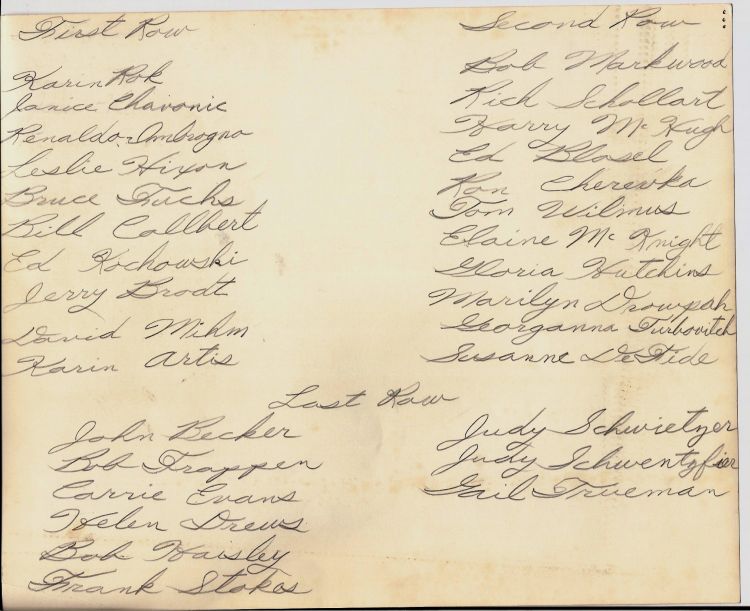 First Row
Karin Rok
Janice Chavonic
Renaldo Ambrogno
Leslie Hixon
Bruce Fuchs
Bill Callbert
Ed Kochowski
Jerry Brodt
David Mihm
Karin Artis
Second Row
Bob Markwood
Rich Schollart
Harry McHugh
Ed Blosel
Ron Cherevka
Tom Wilmus
Elaine McKnight
Gloria Hutchins
Marilyn Drowpah
Georganna Turbovitch
Susanne DeFide
Last Row
John Becker
Bob Trappen
Carrie Evans
Helen Drews
Bob Haisley
Frank Stokes
Judy Schwietzer
Judy Schwentzfier
Gail Trueman